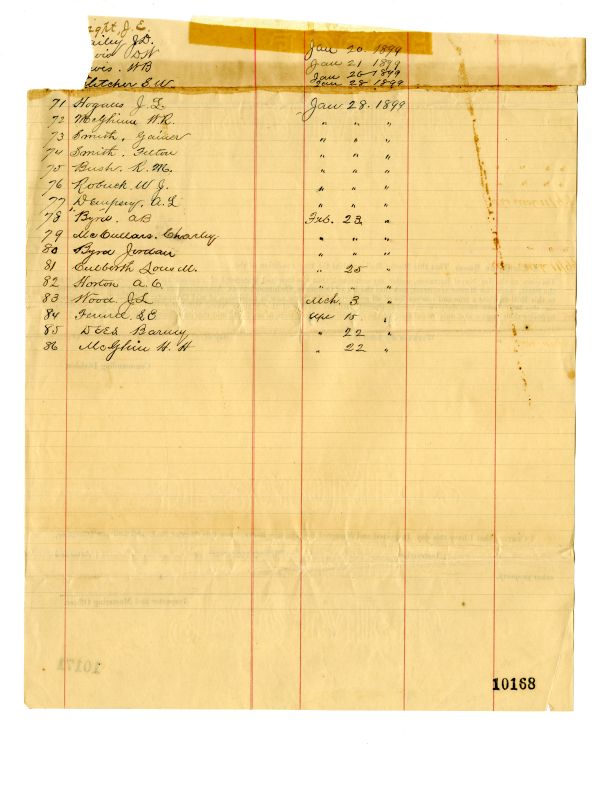 ight J. E.
ailey J.D. Jan 20. 1899
avid DW Jan 21 1899
avis. WB Jan 26 1899
Fletcher E. W. Jan 28 1899
71 Hogans J. L. Jan 28. 1899
72 McGhinn W.R. " " "
73 Smith, Gainer " " "
74 Smith. Felton " " "
75 Bush. R. M. " " "
76 Robuck W J. " " "
77 Dempsey. A. L " " "
78 Byrd. AB Feb. 23 "
79 McCullars. Charley " " "
80 Byrd Jordan " " "
81 Culberth Louis M. " 25 "
82 Horton A. C " " "
83 Wood. J.L Mch. 3 "
84 S. C Apr 15 "
85 Barney " 22 "
86 McGhin H. H " 22 "
10168